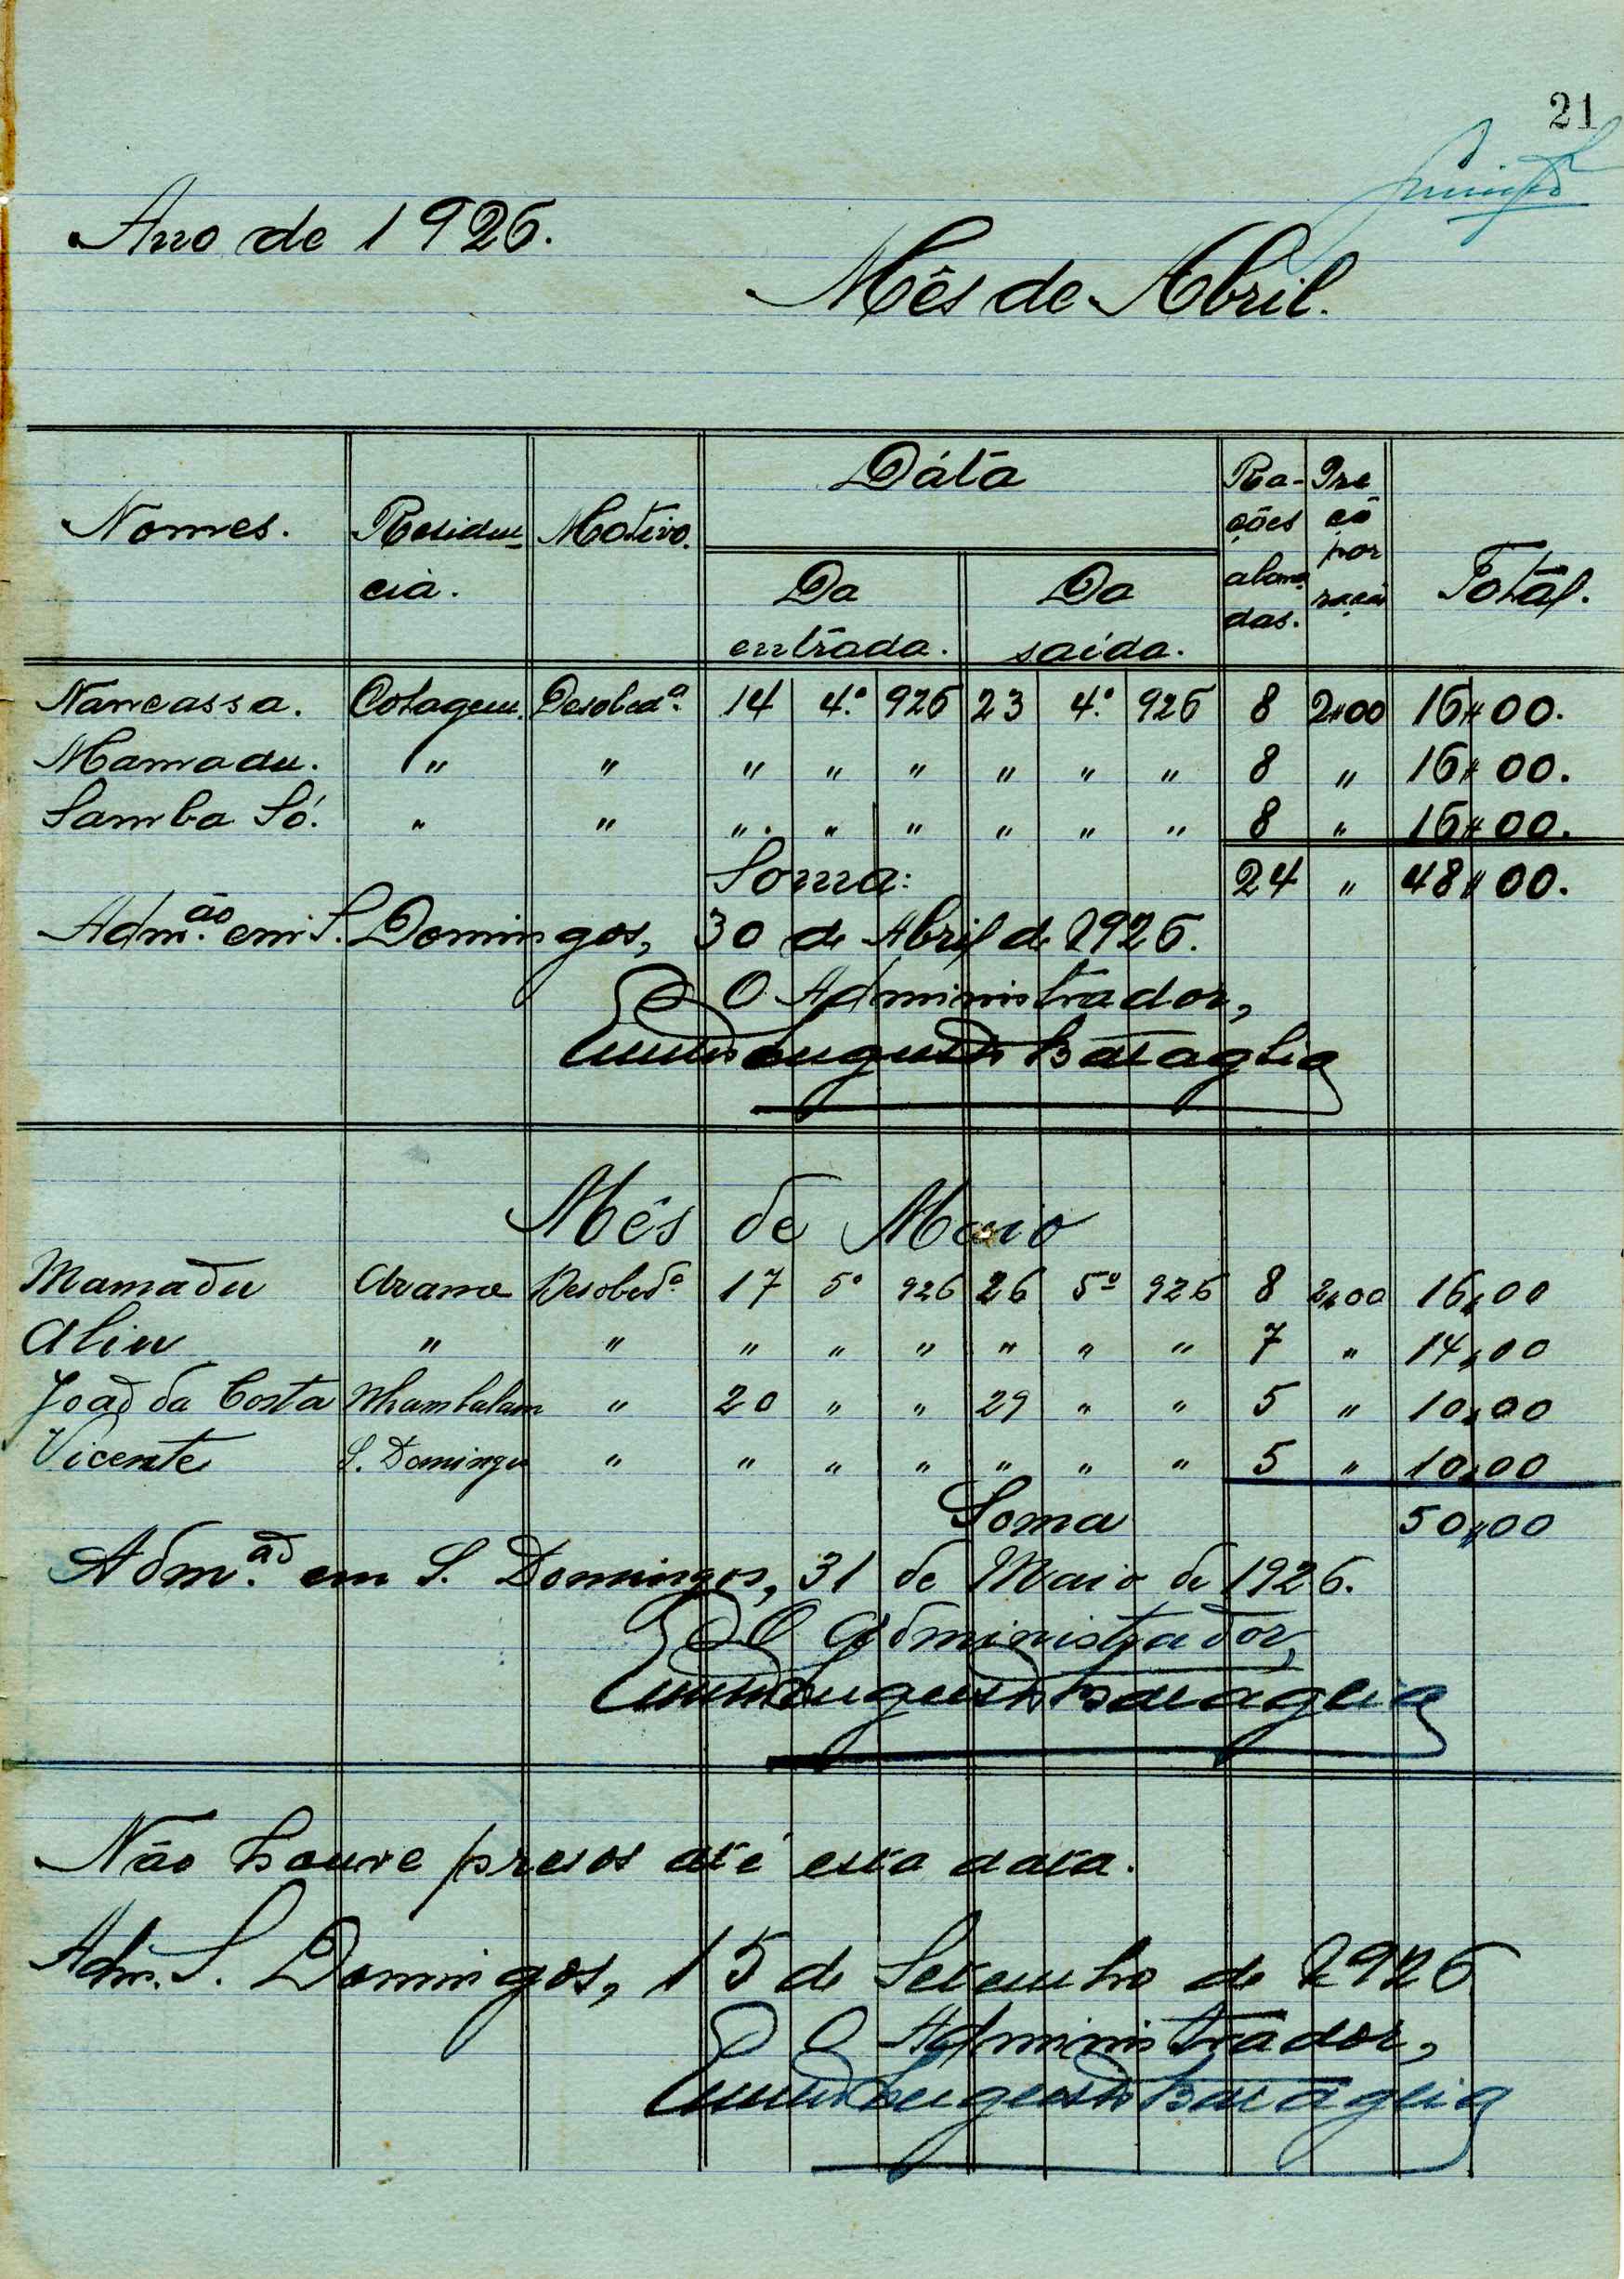 21
Ano de 1926.
Mês de Abril.
Nomes. Residen- cia. Motivo. Dáta Da entrada. Da saída. Ra- ções abona das. Pre ço por ração Total.
Nancassa. Cotagem. Desobeda. 14 4.º 926 23 4.º 926 8 2$00 16$00.
Mamadu. " " " " " " " " 8 " 16$00.
Samba Só. " " " " " " " " 8 " 16$00.
Soma: 24 " 48$00.
Adm.ão em S. Domingos, 30 de Abril de 1926.
O Administrador,
Augusto Bataglia
Mês de Maio
Mamadu Arame Desobeda. 17 5º 926 26 5º 926 8 2$00 16$00
Aliu " " " " " " " " 7 " 14$00
João da Costa Nhambalam " 20 " " 29 " " 5 " 10$00
Vicente S. Domingos " " " " " " " 5 " 10$00
Soma 50$00
Adm.ão em S. Domingos, 31 de Maio de 1926.
O Administrador,
Augusto Bataglia
Não houve presos até esta data.
Adm. S. Domingos, 15 de Setembro de 1926
O Administrador,
Augusto Bataglia